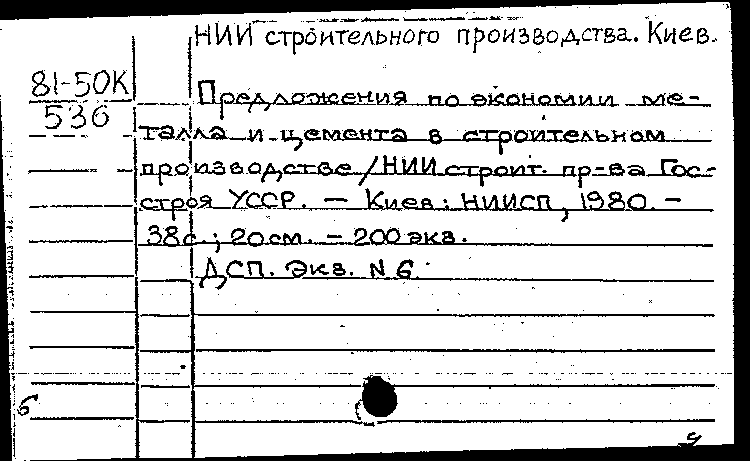 НИИ строительного производства. Киев.
81-50К
536
Предложения по экономии ме-
талла и цемента в строительном
производстве/НИИ строит. пр-ва Гос-
строя УССР. — Киев: НИИСП, 1980. —
38с.; 20см. — 200 экз.
ДСП. Экз. N 6.
б